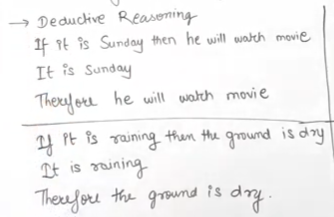 → Deductive Reasoning
If it is Sunday then he will watch movie
It is Sunday
Therefore he will watch movie
If it is raining then the ground is dry
It is raining
Therefore the ground is dry.